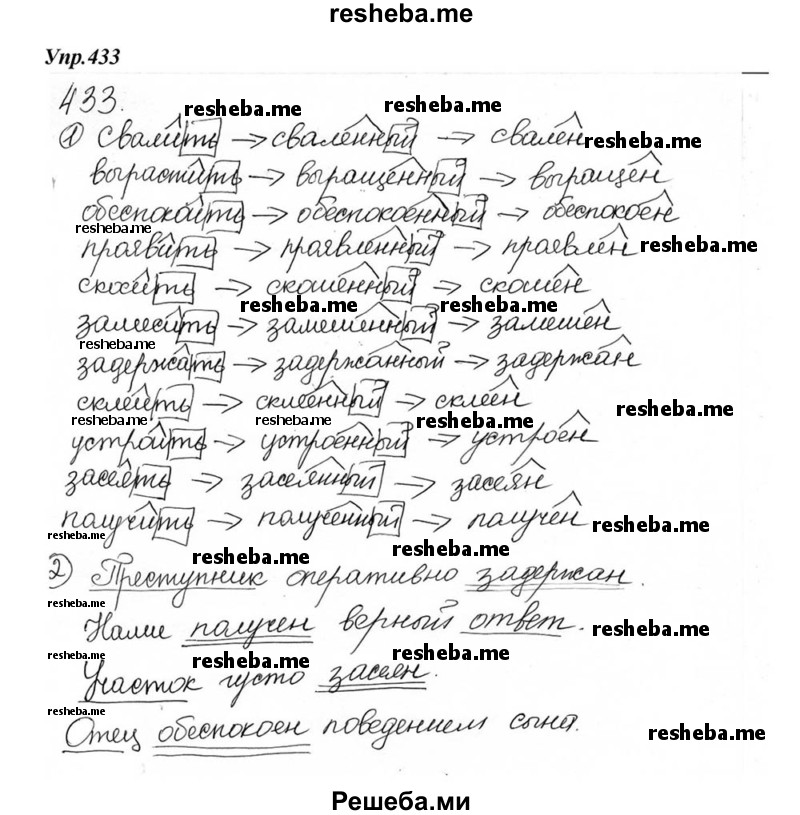 resheba.me
Упр.433
433. resheba.me resheba.me
1) Свалить → сваленный → свален resheba.me
вырастить → выращенный → выращен
обеспокоить → обеспокоенный → обеспокоен
resheba.me
проявить → проявленный → проявлен resheba.me
скосить → скошенный → скошен
resheba.me resheba.me
замесить → замешенный → замешен
resheba.me
задержать → задержанный → задержан
склеить → склеенный → склеен resheba.me
resheba.me resheba.me resheba.me
устроить → устроенный → устроен
засеять → засеянный → засеян
получить → полученный → получен resheba.me
resheba.me resheba.me resheba.me
2) Преступник оперативно задержан.
resheba.me
Нами получен верный ответ. resheba.me
resheba.me resheba.me resheba.me
Участок густо засеян.
resheba.me
Отец обеспокоен поведением сына. resheba.me
Решеба.ми